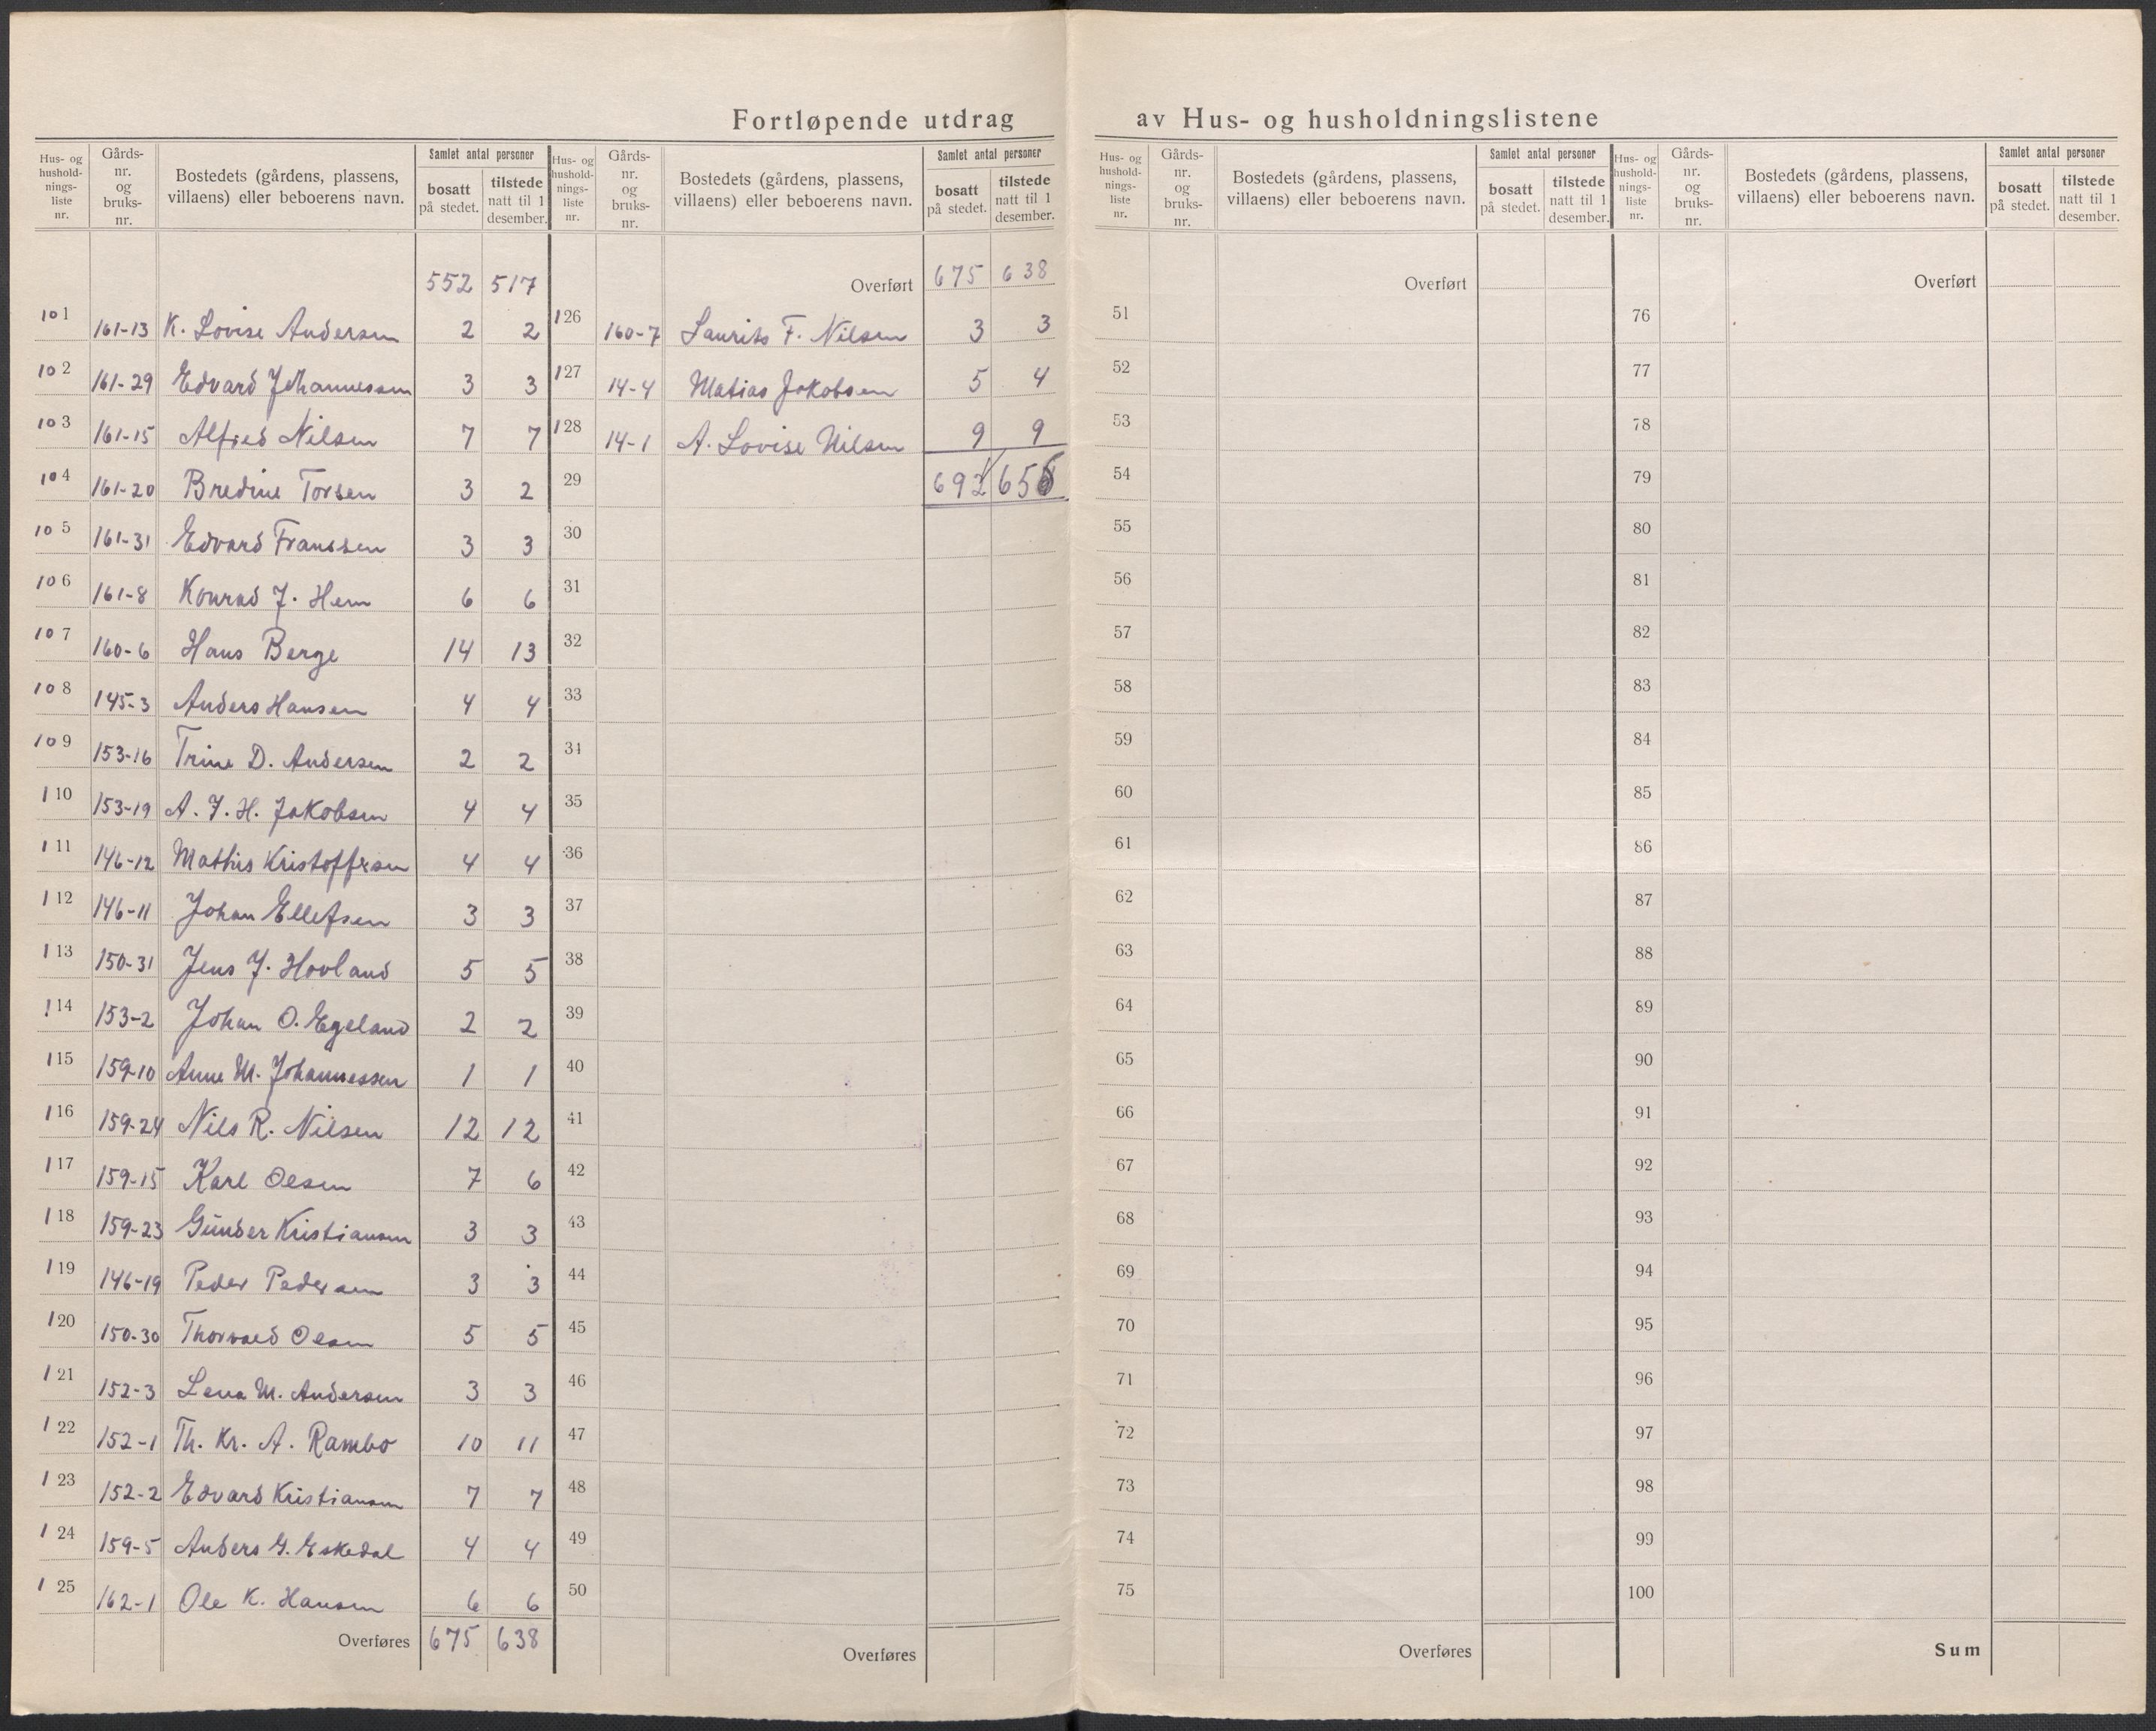 Fortløpende utdrag av Hus- og husholdningslistene
Hus- og hushold-nings-liste nr. | Gårds-nr. og bruks-nr. | Bostedets (gårdens, plassens, villaens) eller beboerens navn. | Samlet antal personer | bosatt på stedet. | tilstede natt til 1 desember.
552 517
101 161-13 K. Lovise Andersen 2 2
102 161-29 Edvard Johannessen 3 3
103 161-15 Alfred Nilsen 7 7
104 161-20 Bredine Torsen 3 2
105 161-31 Edvard Franssen 3 3
106 161-8 Konrad J. Hem 6 6
107 160-6 Hans Berge 14 13
108 145-3 Anders Hansen 4 4
109 153-16 Trine D. Andersen 2 2
110 153-19 A. J. H. Jakobsen 4 4
111 146-12 Mathis Kristoffersen 4 4
112 146-11 Johan Ellefsen 3 3
113 150-31 Jens J. Hovland 5 5
114 153-2 Johan O. Egeland 2 2
115 159-10 Anne M. Johannessen 1 1
116 159-24 Nils R. Nilsen 12 12
117 159-15 Karl Olsen 7 6
118 159-23 Günder Kristiansen 3 3
119 146-19 Peder Pedersen 3 3
120 150-30 Thorvald Olsen 5 5
121 152-3 Lena M. Andersen 3 3
122 152-1 Th. Kr. A. Rambo 10 11
123 152-2 Edvard Kristiansen 7 7
124 159-5 Anders G. Eskedal 4 4
125 162-1 Ole K. Hansen 6 6
Overføres 675 638
Hus- og hushold-nings-liste nr. | Gårds-nr. og bruks-nr. | Bostedets (gårdens, plassens, villaens) eller beboerens navn. | Samlet antal personer | bosatt på stedet. | tilstede natt til 1 desember.
Overført 675 638
126 160-7 Laurits F. Nilsen 3 3
127 14-4 Matias Jakobsen 5 4
128 14-1 A. Lovise Nilsen 9 9
29 692
30
31
32
33
34
35
36
37
38
39
40
41
42
43
44
45
46
47
48
49
50
Overføres
Hus- og hushold-nings-liste nr. | Gårds-nr. og bruks-nr. | Bostedets (gårdens, plassens, villaens) eller beboerens navn. | Samlet antal personer | bosatt på stedet. | tilstede natt til 1 desember.
Overført
51
52
53
54
55
56
57
58
59
60
61
62
63
64
65
66
67
68
69
70
71
72
73
74
75
Overføres
Hus- og hushold-nings-liste nr. | Gårds-nr. og bruks-nr. | Bostedets (gårdens, plassens, villaens) eller beboerens navn. | Samlet antal personer | bosatt på stedet. | tilstede natt til 1 desember.
Overført
76
77
78
79
80
81
82
83
84
85
86
87
88
89
90
91
92
93
94
95
96
97
98
99
100
Sum